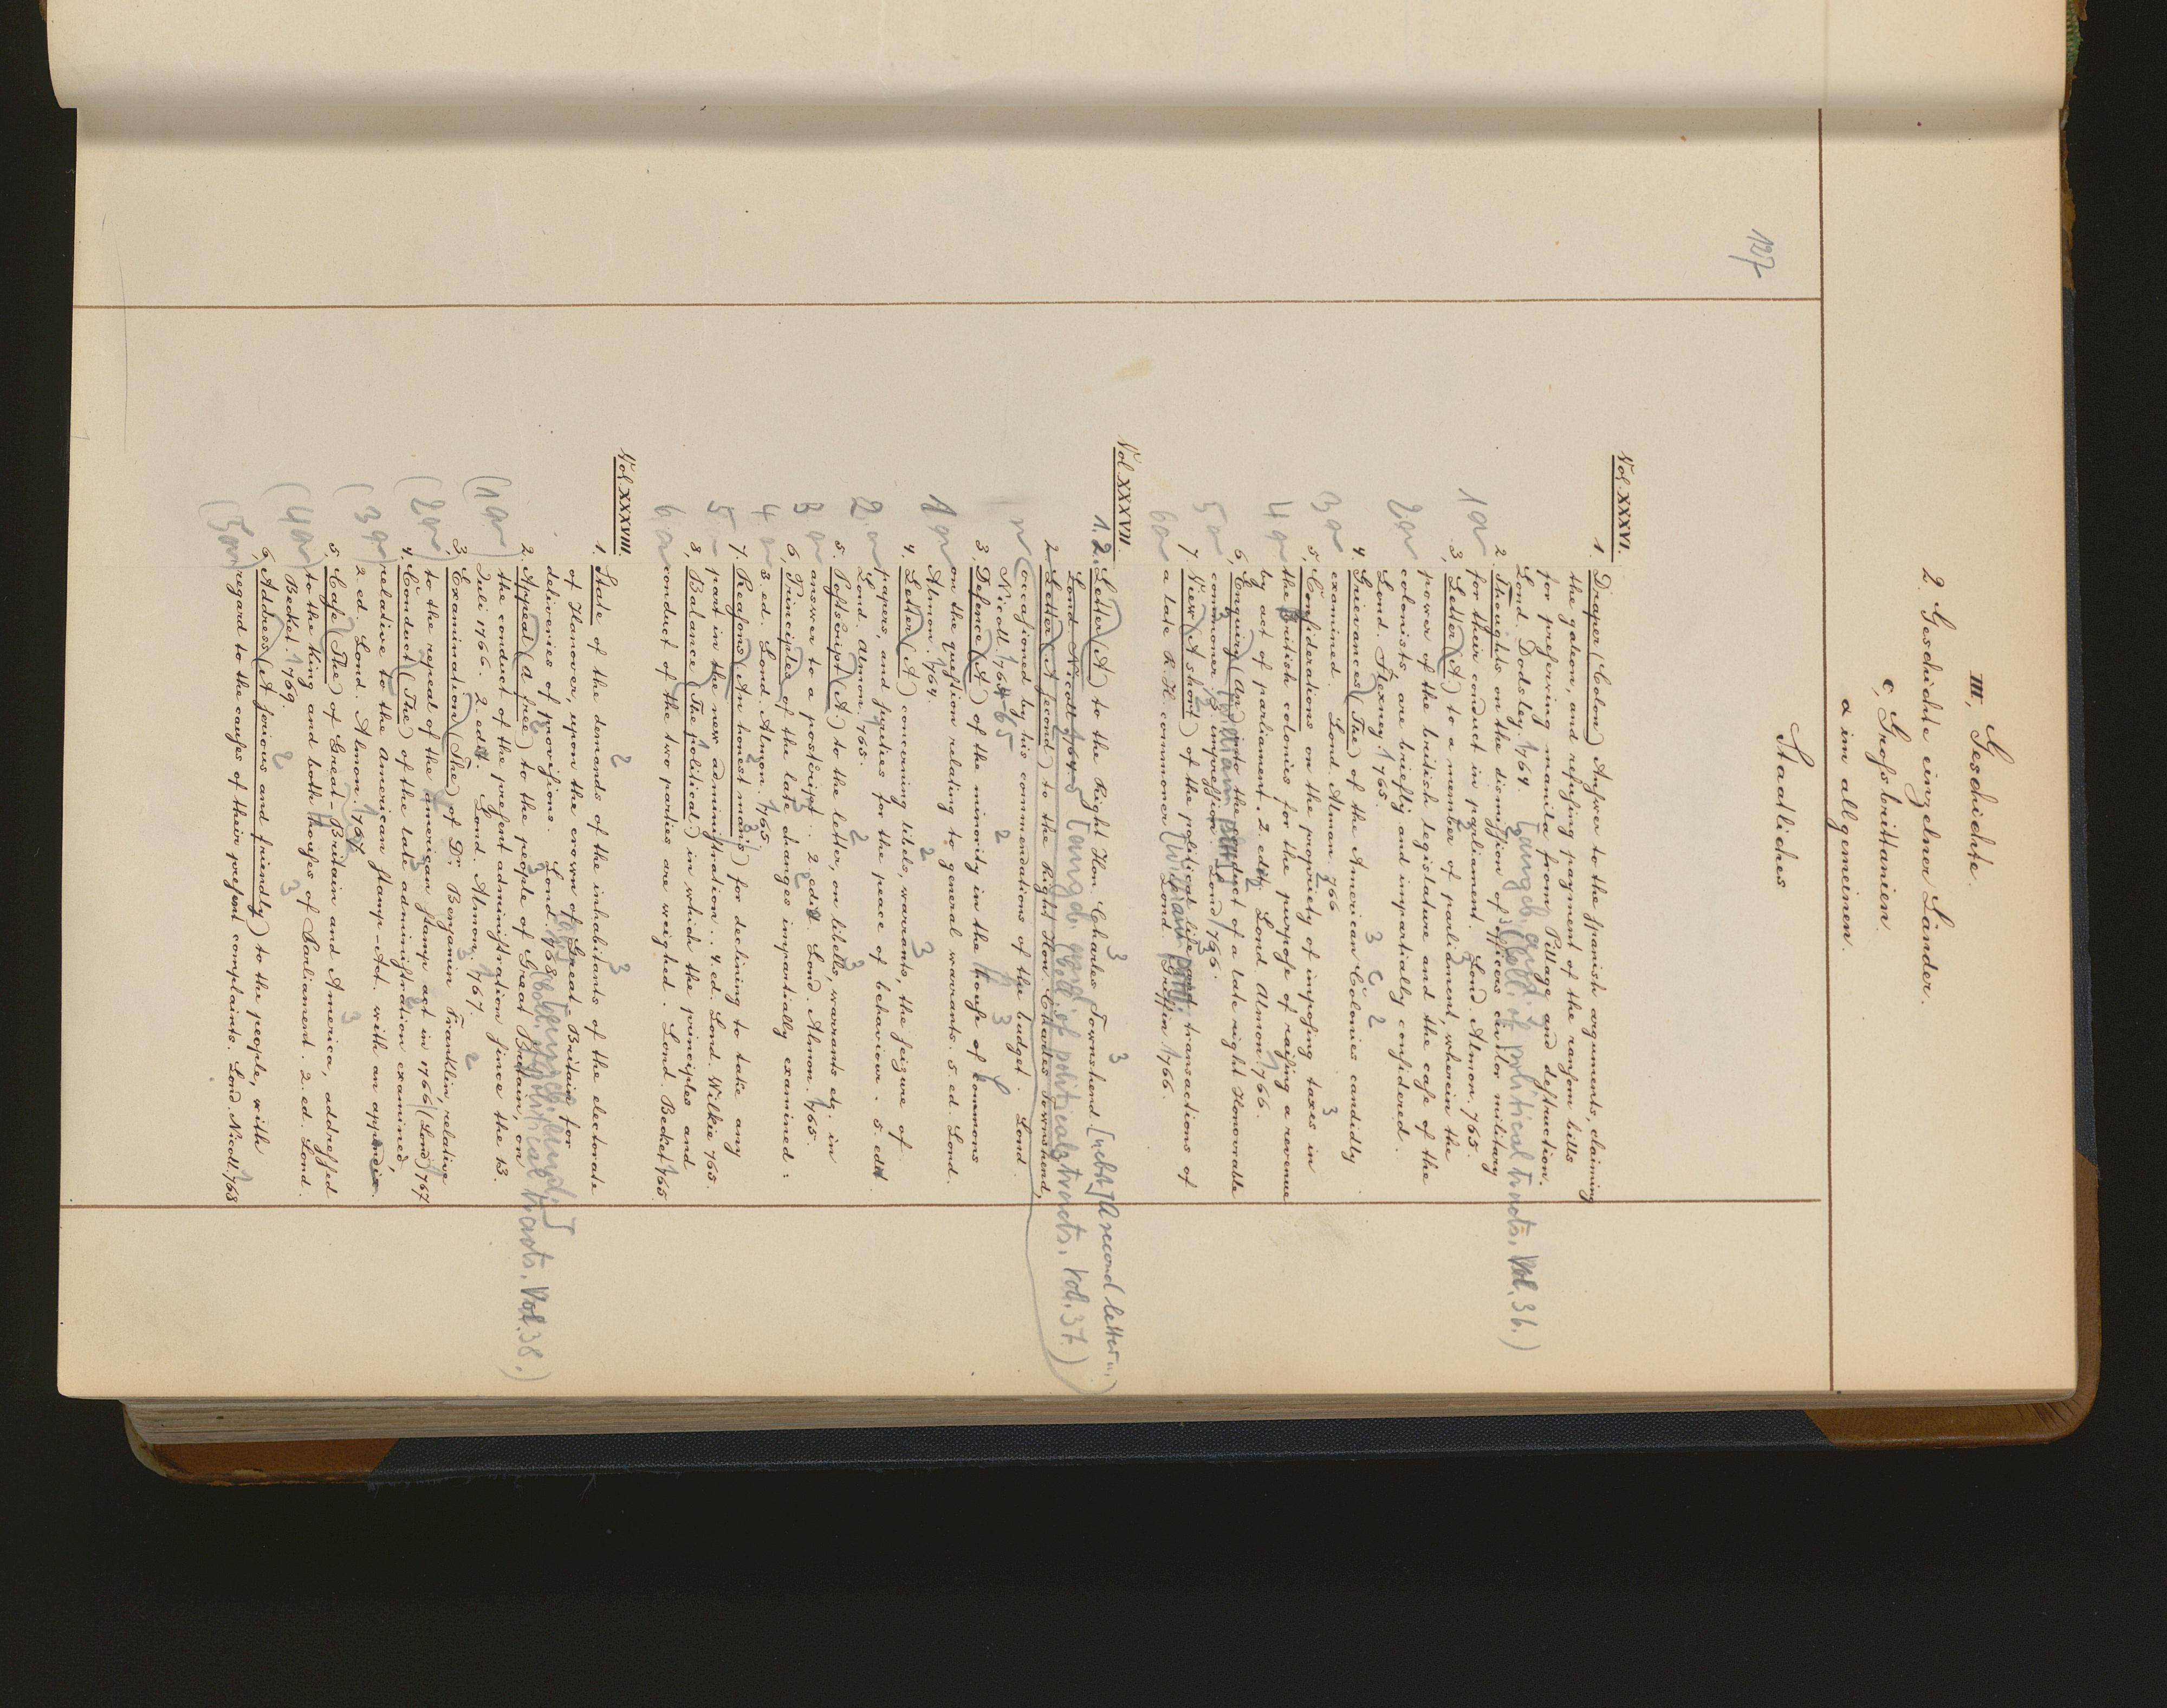 III, Geschichte.
2. Geschichte einzelner Länder.
c, Grofsbrittanien.
a im allgemeinen.
Staatliches
127
Vol. XXXVI.
1. Draper (Colon) Answer to the spanish arguments, claiming
the galeon, and refusing payment of the ransom bills
for preserving manila from Pillage and destruction.
Lond. Dodsley. 1764. [angeb. ard. ] (Coll. of political tracts. Vol. 36.)
2. Thoughts on the dismission of officers civil or military
for their conduct in parliament. Lond. Almon. 765.
3, Letter (A) to a member of parliament, wherein the
power of the british legislature and the case of the
colonists, are briefly and impartially considered.
Lond. Flexney. 1765.
4. Grievances (The) of the American Colonies candidly
examined. Lond. Alman. 766
5, Considerations on the propriety of imposing taxes in
the British colonies for the purpose of raising a revenue
by act of parliament. 2. edit. Lond. Almon. 1766.
6, Enquiry (An) into the conduct of a late right Honorable
commoner. 3. impression. Lond. 1766.
7. View (A short) of the political life and transactions of
a late R. H. commoner (William Pitt). Lond. Griffin 1766.
Vol. XXXVII.
1.2. Letter (A) to the Right Hon. Charles Townshend. [nebst] A second letter...)
Lond. Nicoll 1764 [angeb. (Coll. of political tracts. Vol. 37.)
2 Letter (A second) to the Right Hon. Charles Townshend,
occasioned by his commendations of the budget. Lond.
Nicoll. 1764-65
3, Defence (A) of the minority in the house of commons
on the question relating to general warants. 5. ed. Lond.
Almon. 1764.
4. Letter (A) concerning libels, warrants, the seizure of
papers, and sureties for the peace of behaviour. 5. edit.
Lond. Almon. 1765.
5. Postscript (A) to the letter, on libells, warrants etz. in
answer to a postscript.. 2. edit. Lond. Almon. 1765.
6, Principles of the late changes impartially examined:
3. ed. Lond. Almon. 1765.
7. Reasons (An honest man's) for declining to take any
part in the new administration.. 4. ed. Lond. Wilkie 765.
8, Balance (The political) in which the principles and
conduct of the two parties are weighed. Lond. Becket 1765.
Vol. XXXVIII.
1. State of the demands of the inhabitants of the electorate
of Hanover, upon the crown of Great-Britain for
deliveries of provisions. Lond. 1768. (Coll. of political tracts. Vol. 38.)
2. Appeal (A free) to the people of Great Britain, on
the conduct of the present administration since the 13.
Juli 1766. 2. edit. Lond. Almon. 1767.
3, Examination (The) of Dr. Benjamin Franklin, relative
to the repeal of the american stamp act in 1766 (Lond.) 767
4. Conduct (The) of the late administration examined,
relative to the American stamp-Act. with an appendix.
2. ed. Lond. Almon. 1767.
5, Case (The) of Great-Britain and America, addressed
to the king and both houses of Parliament. 2. ed. Lond.
Becket. 1769.
6, Address (A serious and friendly) to the people, with
regard to the causes of their present complaints. Lond. Nicoll. 1768